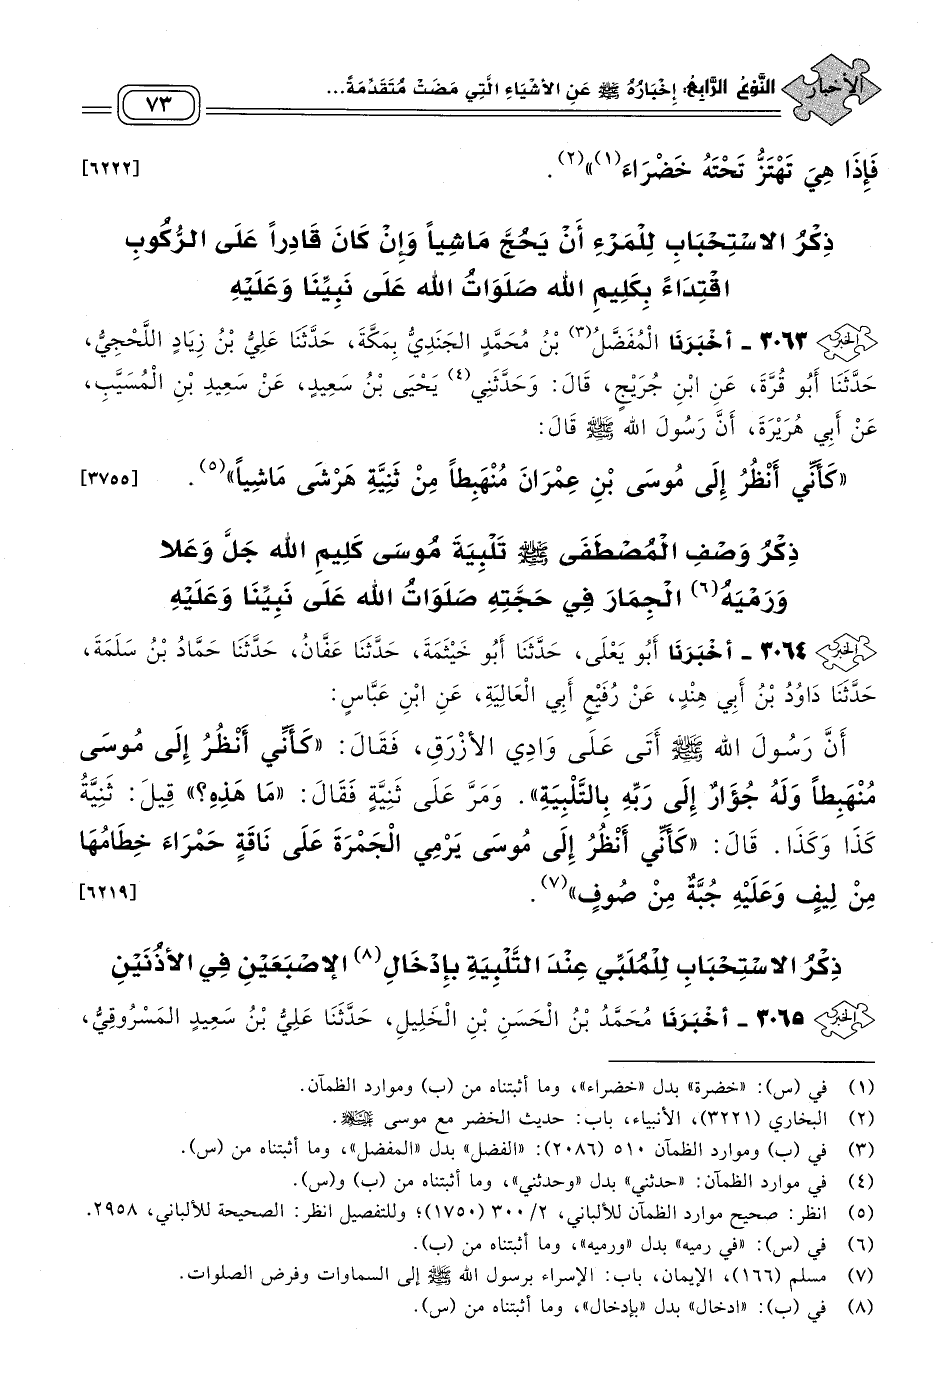 الأخبار
النَّوْعُ الرَّابِعُ: إِخْبَارُهُ ﷺ عَنِ الأَشْيَاءِ الَّتِي مَضَتْ مُتَقَدِّمَةً...
٧٣
فَإِذَا هِيَ تَهْتَزُّ تَحْتَهُ خَضْرَاءَ(١)»(٢). [٦٢٢٢]
ذِكْرُ الاسْتِحْبَابِ لِلْمَرْءِ أَنْ يَحُجَّ مَاشِياً وَإِنْ كَانَ قَادِراً عَلَى الرُّكُوبِ
اقْتِدَاءً بِكَلِيمِ الله صَلَوَاتُ الله عَلَى نَبِيِّنَا وَعَلَيْهِ
٣٠٦٣ ـ أَخْبَرَنَا الْمُفَضَّلُ(٣) بْنُ مُحَمَّدٍ الجَنَدِيُّ بِمَكَّةَ، حَدَّثَنَا عَلِيُّ بْنُ زِيَادٍ اللَّحْجِيُّ،
حَدَّثَنَا أَبُو قُرَّةَ، عَنِ ابْنِ جُرَيْجٍ، قَالَ: وَحَدَّثَنِي(٤) يَحْيَى بْنُ سَعِيدٍ، عَنْ سَعِيدِ بْنِ الْمُسَيَّبِ،
عَنْ أَبِي هُرَيْرَةَ، أَنَّ رَسُولَ الله ﷺ قَالَ:
«كَأَنِّي أَنْظُرُ إِلَى مُوسَى بْنِ عِمْرَانَ مُنْهَبِطاً مِنْ ثَنِيَّةِ هَرْشَى مَاشِياً»(٥). [٣٧٥٥]
ذِكْرُ وَصْفِ الْمُصْطَفَى ﷺ تَلْبِيَةَ مُوسَى كَلِيمِ الله جَلَّ وَعَلا
وَرَمْيَهُ(٦) الْجِمَارَ فِي حَجَّتِهِ صَلَوَاتُ الله عَلَى نَبِيِّنَا وَعَلَيْهِ
٣٠٦٤ ـ أَخْبَرَنَا أَبُو يَعْلَى، حَدَّثَنَا أَبُو خَيْثَمَةَ، حَدَّثَنَا عَفَّانُ، حَدَّثَنَا حَمَّادُ بْنُ سَلَمَةَ،
حَدَّثَنَا دَاوُدُ بْنُ أَبِي هِنْدٍ، عَنْ رُفَيْعٍ أَبِي الْعَالِيَةِ، عَنِ ابْنِ عَبَّاسٍ:
أَنَّ رَسُولَ الله ﷺ أَتَى عَلَى وَادِي الأَزْرَقِ، فَقَالَ: «كَأَنِّي أَنْظُرُ إِلَى مُوسَى
مُنْهَبِطاً وَلَهُ جُؤَارٌ إِلَى رَبِّهِ بِالتَّلْبِيَةِ». وَمَرَّ عَلَى ثَنِيَّةٍ فَقَالَ: «مَا هَذِهِ؟» قِيلَ: ثَنِيَّةُ
كَذَا وَكَذَا. قَالَ: «كَأَنِّي أَنْظُرُ إِلَى مُوسَى يَرْمِي الْجَمْرَةَ عَلَى نَاقَةٍ حَمْرَاءَ خِطَامُهَا
مِنْ لِيفٍ وَعَلَيْهِ جُبَّةٌ مِنْ صُوفٍ»(٧). [٦٢١٩]
ذِكْرُ الاسْتِحْبَابِ لِلْمُلَبِّي عِنْدَ التَّلْبِيَةِ بِإِدْخَالِ(٨) الإِصْبَعَيْنِ فِي الأُذُنَيْنِ
٣٠٦٥ ـ أَخْبَرَنَا مُحَمَّدُ بْنُ الْحَسَنِ بْنِ الْخَلِيلِ، حَدَّثَنَا عَلِيُّ بْنُ سَعِيدٍ المَسْرُوقِيُّ،
(١) في (س): «خضرة» بدل «خضراء»، وما أثبتناه من (ب) وموارد الظمآن.
(٢) البخاري (٣٢٢١)، الأنبياء، باب: حديث الخضر مع موسى عليهما السلام.
(٣) في (ب) وموارد الظمآن ٥١٠ (٢٠٨٦): «الفضل» بدل «المفضل»، وما أثبتناه من (س).
(٤) في موارد الظمآن: «حدثني» بدل «وحدثني»، وما أثبتناه من (ب) و(س).
(٥) انظر: صحيح موارد الظمآن للألباني، ٢/ ٣٠٠ (١٧٥٠)؛ وللتفصيل انظر: الصحيحة للألباني، ٢٩٥٨.
(٦) في (س): «في رميه» بدل «ورميه»، وما أثبتناه من (ب).
(٧) مسلم (١٦٦)، الإيمان، باب: الإسراء برسول الله ﷺ إلى السماوات وفرض الصلوات.
(٨) في (ب): «ادخال» بدل «بإدخال»، وما أثبتناه من (س).